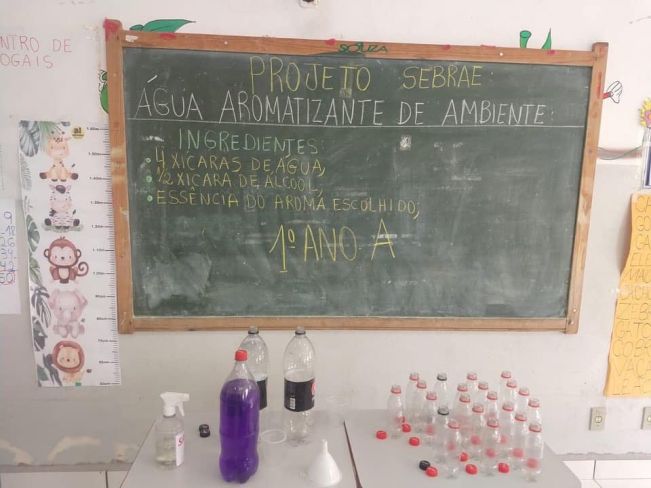 NTRO DE
OGAIS
SOUZA
PROJETO SEBRAE
ÁGUA AROMATIZANTE DE AMBIENTE
INGREDIENTES:
• 4 XICARAS DE ÁGUA,
• 1/2 XICARA DE ALCOOL,
• ESSÊNCIA DO AROMA ESCOLHIDO;
1º ANO A